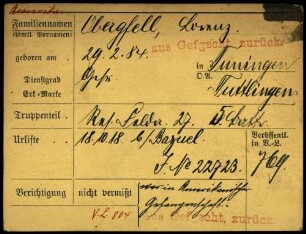 Familiennamen
(sämtl. Vornamen) Obergfell, Lorenz
geboren am 29.2.84. in Tuningen
aus Gefgscht. zurück.
O.A. Tuttlingen
Dienstgrad Gefr.
Erk-Marke
Truppenteil Res. Felda. 27. 5. Battr.
Urliste 18.10.18. b/Bazuel
Veröffentl. in V.-L.
J. No 22723. 769.
Berichtigung nicht vermißt
war in Amerikanischer
Gefangenschaft.
V.L. 804
aus Gefgscht. zurück.